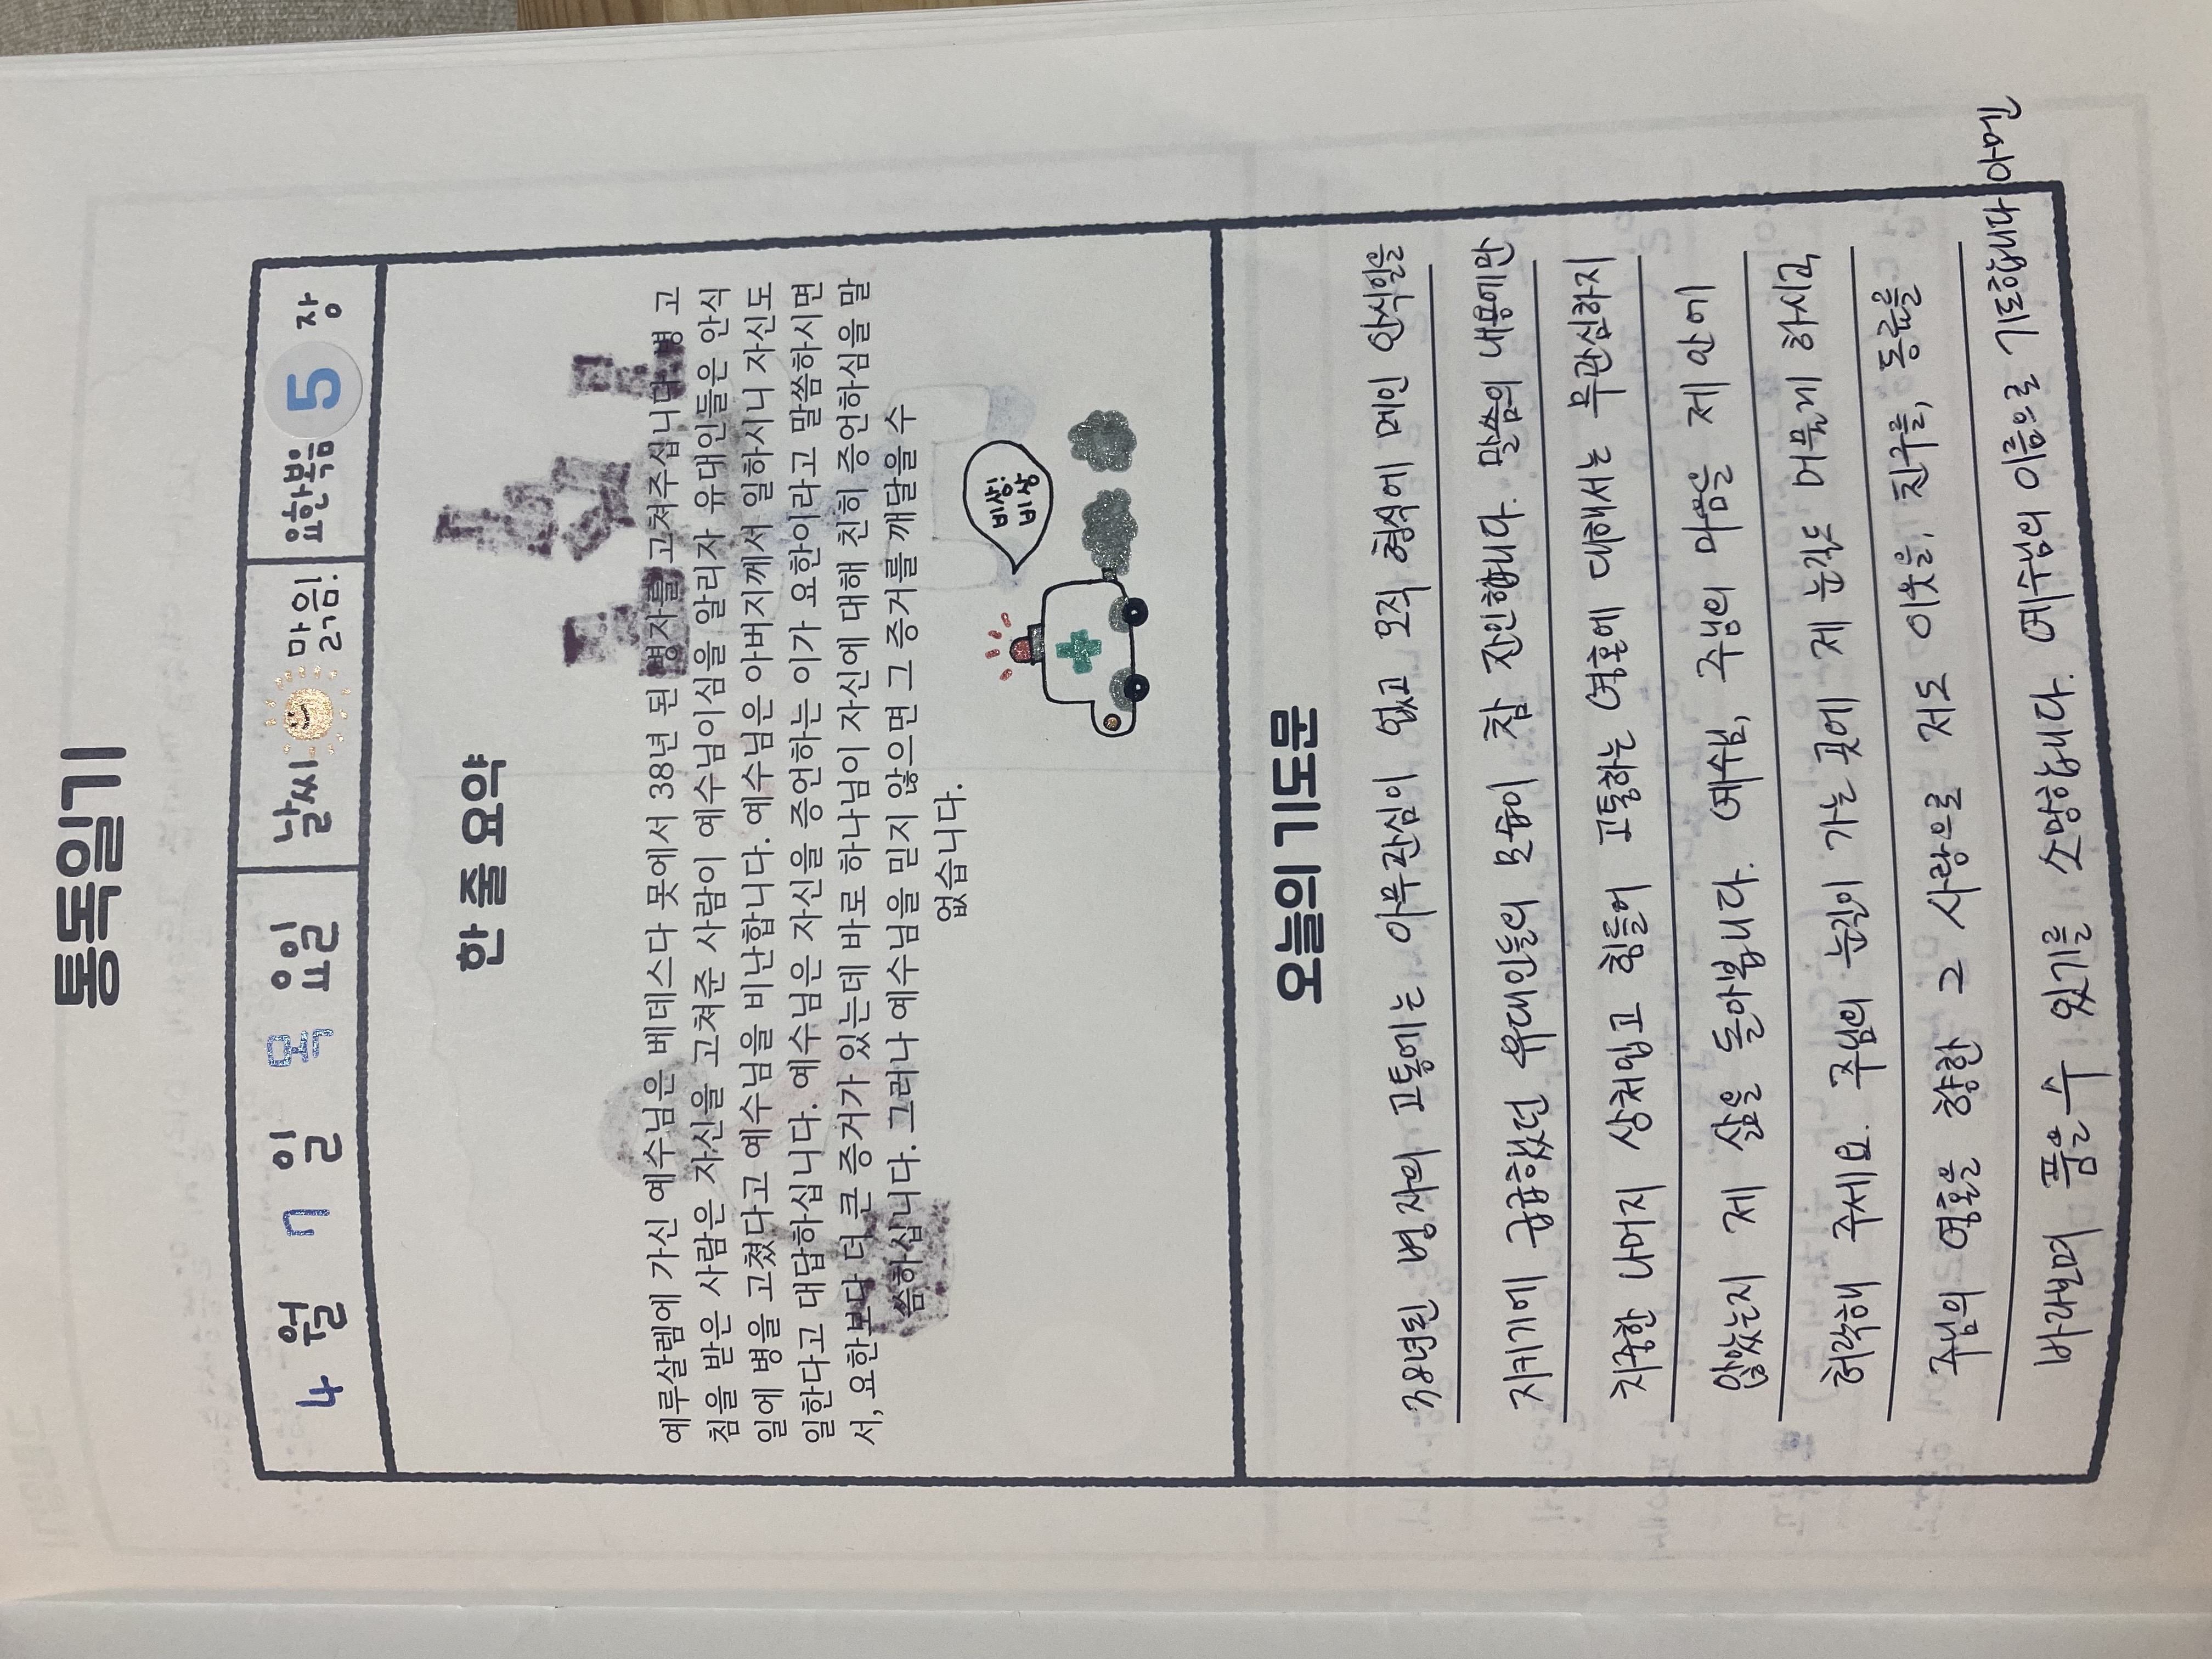 통독일기
4 월 7 일 목 요일 날씨 맑음! 요한복음 5 장
한 줄 요약
예루살렘에 가신 예수님은 베데스다 못에서 38년 된 병자를 고쳐주십니다. 병 고
침을 받은 사람은 자신을 고쳐준 사람이 예수님이심을 알리자 유대인들은 안식
일에 병을 고쳤다고 예수님을 비난합니다. 예수님은 아버지께서 일하시니 자신도
일한다고 대답하십니다. 예수님은 자신을 증언하는 이가 요한이라고 말씀하시면
서, 요한보다 더 큰 증거가 있는데 바로 하나님이 자신에 대해 친히 증언하심을 말
씀하십니다. 그러나 예수님을 믿지 않으면 그 증거를 깨달을 수
없습니다.
비상!
비상
오늘의 기도문
38년된 병자의 고통에는 아무관심이 없고 오직 형식에 매인 안식일을
지키기에 급급했던 유대인들의 모습이 참 잔인합니다. 말씀의 내용에만
치중한 나머지 상처입고 힘들어 고통하는 영혼에 대해서는 무관심하지
않았는지 제 삶을 돌아봅니다. 예수님, 주님의 마음을 제 안에
허락해 주세요. 주님의 눈길이 가는 곳에 제 눈길도 머물게 하시고
주님의 영혼을 향한 그 사랑으로 저도 이웃을, 친구를, 동료를
바라보며 품을 수 있기를 소망합니다. 예수님의 이름으로 기도합니다 아멘